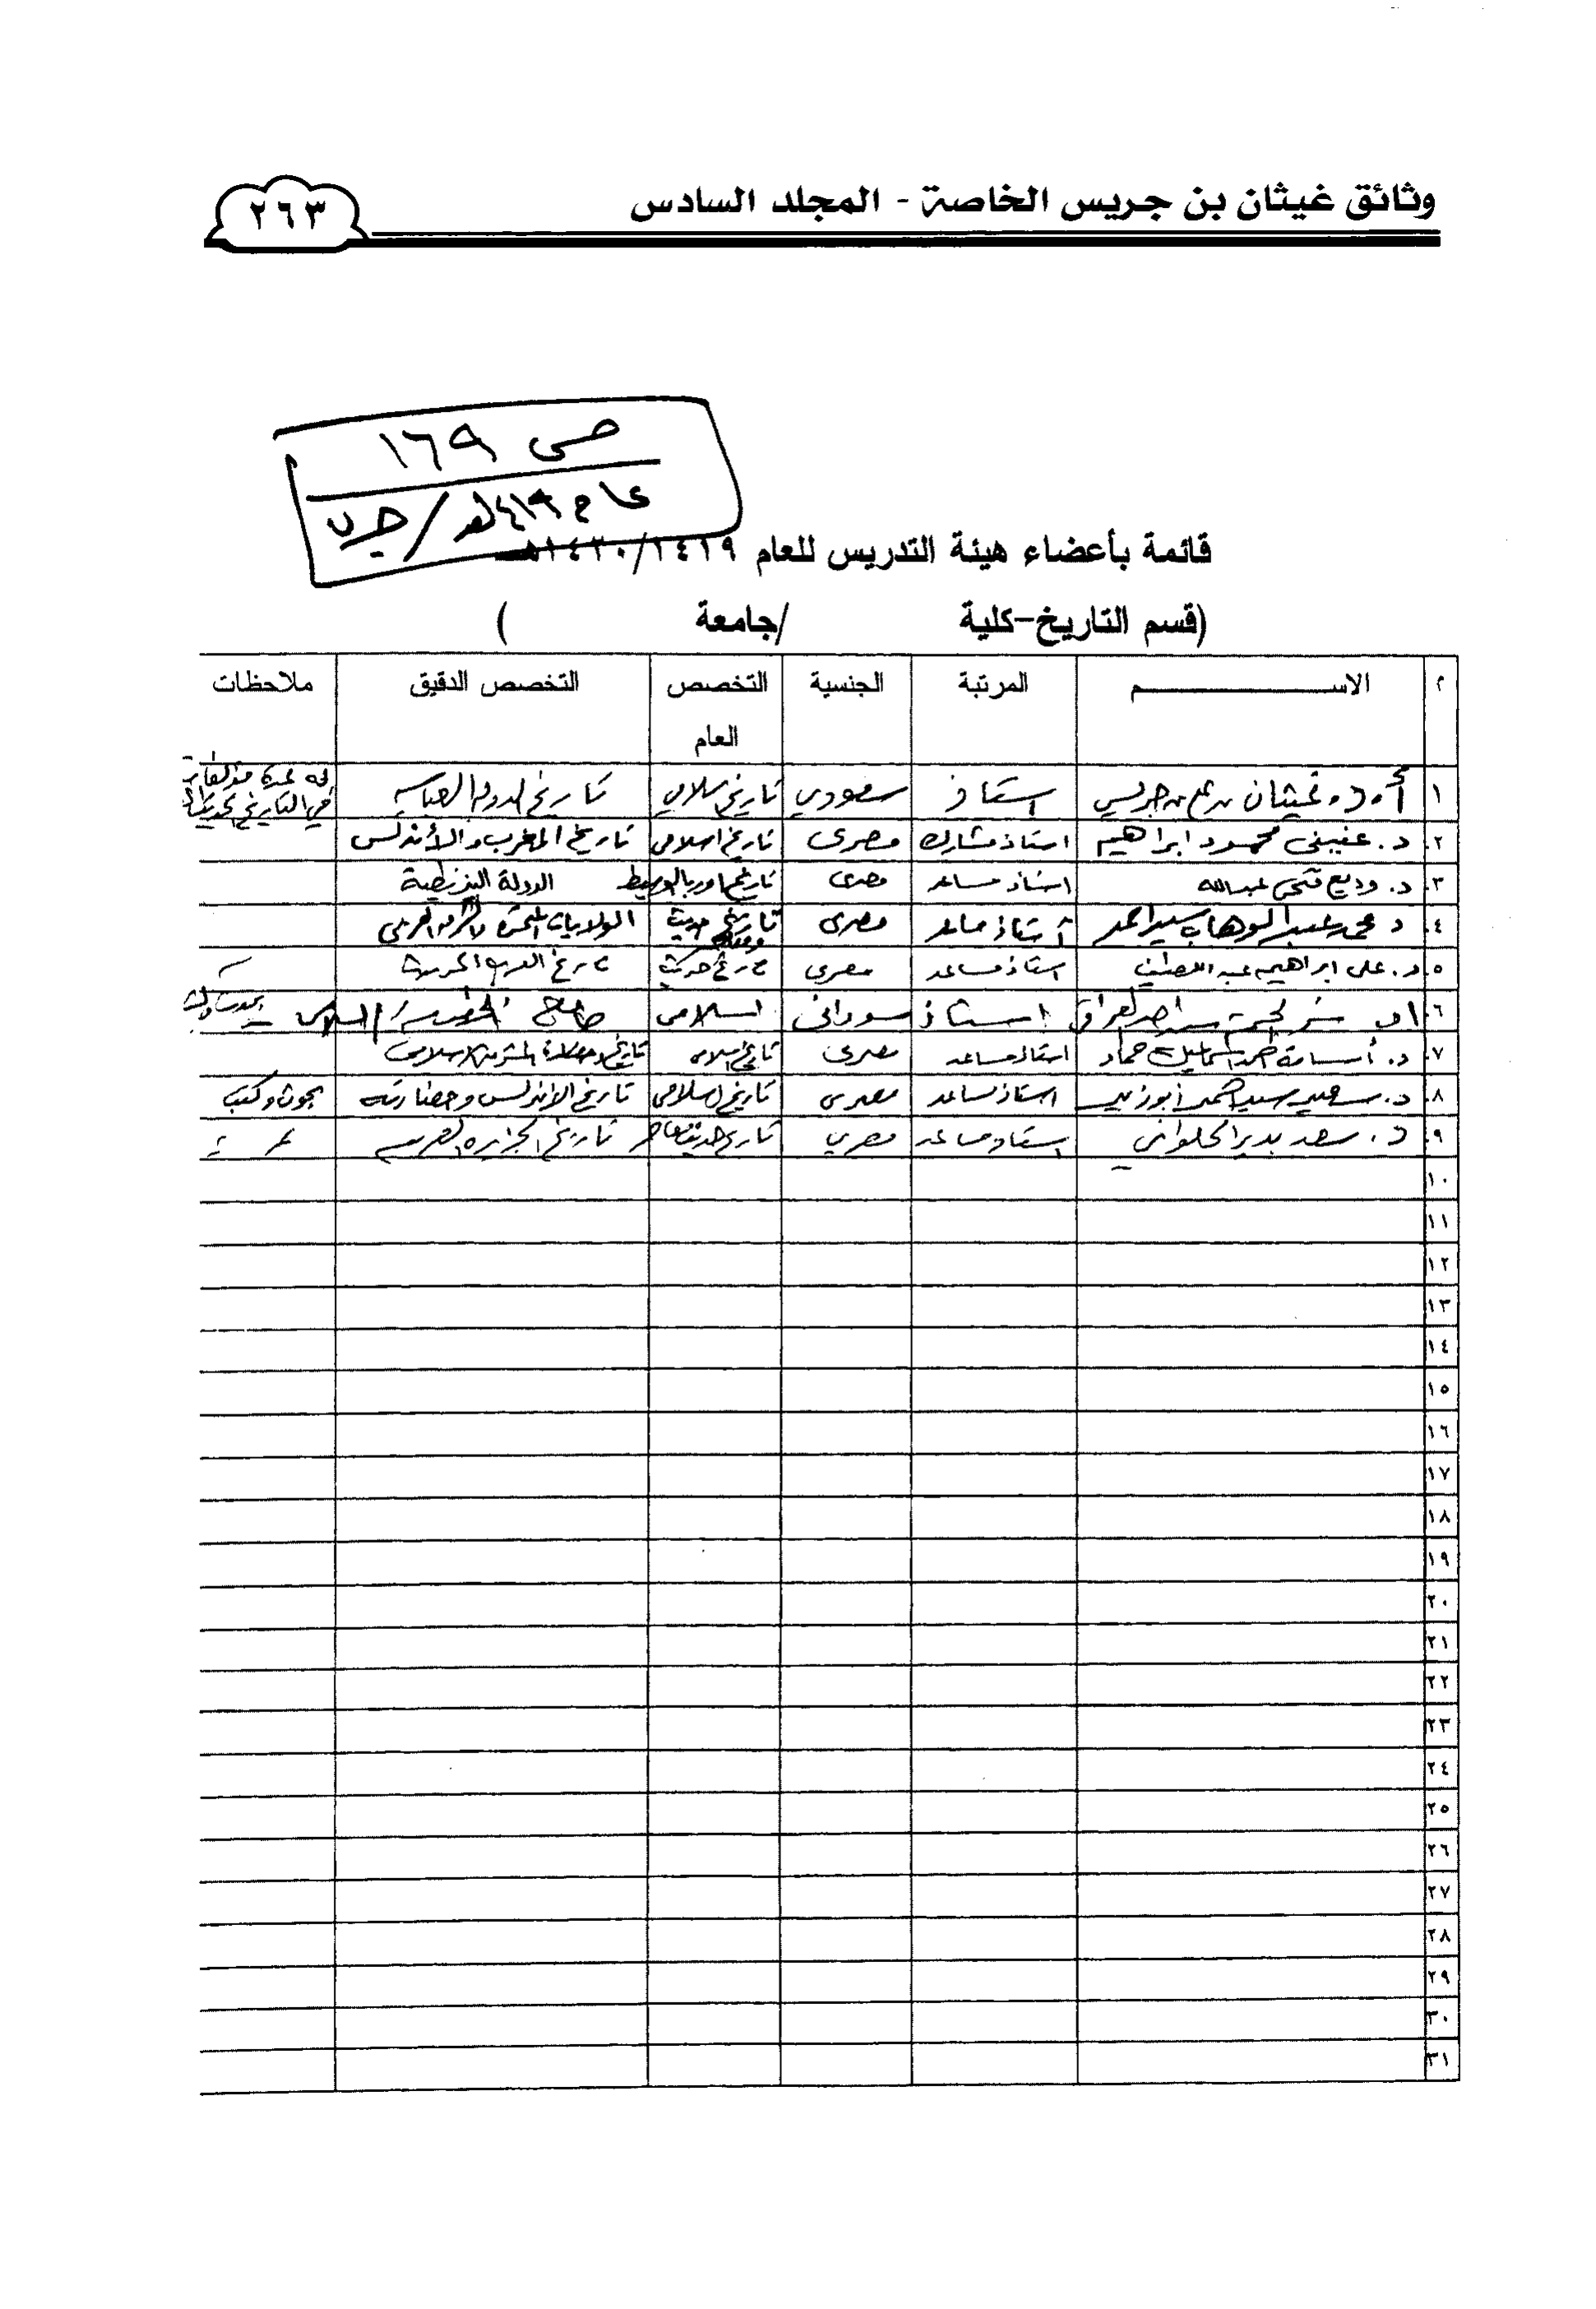 وثائق غيثان بن جريس الخاصة - المجلد السادس
٢٦٣
ص ١٦٩
عام ١٤١٩هـ /
قائمة بأعضاء هيئة التدريس للعام ١٤١٩/١٤٣٠هـ
(قسم التاريخ-كلية /جامعة )
م الاســـــــم المرتبة الجنسية التخصص العام التخصص الدقيق ملاحظات
١ أ.د. غيثان بن علي بن جريس استاذ سعودي تاريخ اسلامي تاريخ الدولة العباسية له عدة مؤلفات في التاريخ الحديث
٢ د. عفيفى محمود ابراهيم استاذ مشارك مصرى تاريخ اسلامى تاريخ المغرب والأندلس
٣ د. وديع فتحى عبدالله استاذ مساعد مصرى تاريخ اوربا الوسيط الدولة البيزنطية
٤ د محمد عبد الوهاب سيد احمد أستاذ مساعد مصرى تاريخ حديث الولايات المتحدة والشرق العربى
٥ د. على ابراهيم عبد اللطيف استاذ مساعد مصرى تاريخ حديث تاريخ العرب الحديث
٦ استاذ سودانى اسلامى
٧ د. أسامة احمد اسماعيل حماد استاذ مساعد مصرى تاريخ اسلامى
٨ د. سحر سيد احمد ابوزيد استاذ مساعد مصرى تاريخ اسلامى تاريخ الاندلس وحضارته بحوث وكتب
٩ د. سعد بدير الحلواني استاذ مساعد مصري تاريخ حديث معاصر تاريخ الجزيرة العربية
١٠
١١
١٢
١٣
١٤
١٥
١٦
١٧
١٨
١٩
٢٠
٢١
٢٢
٢٣
٢٤
٢٥
٢٦
٢٧
٢٨
٢٩
٣٠
٣١